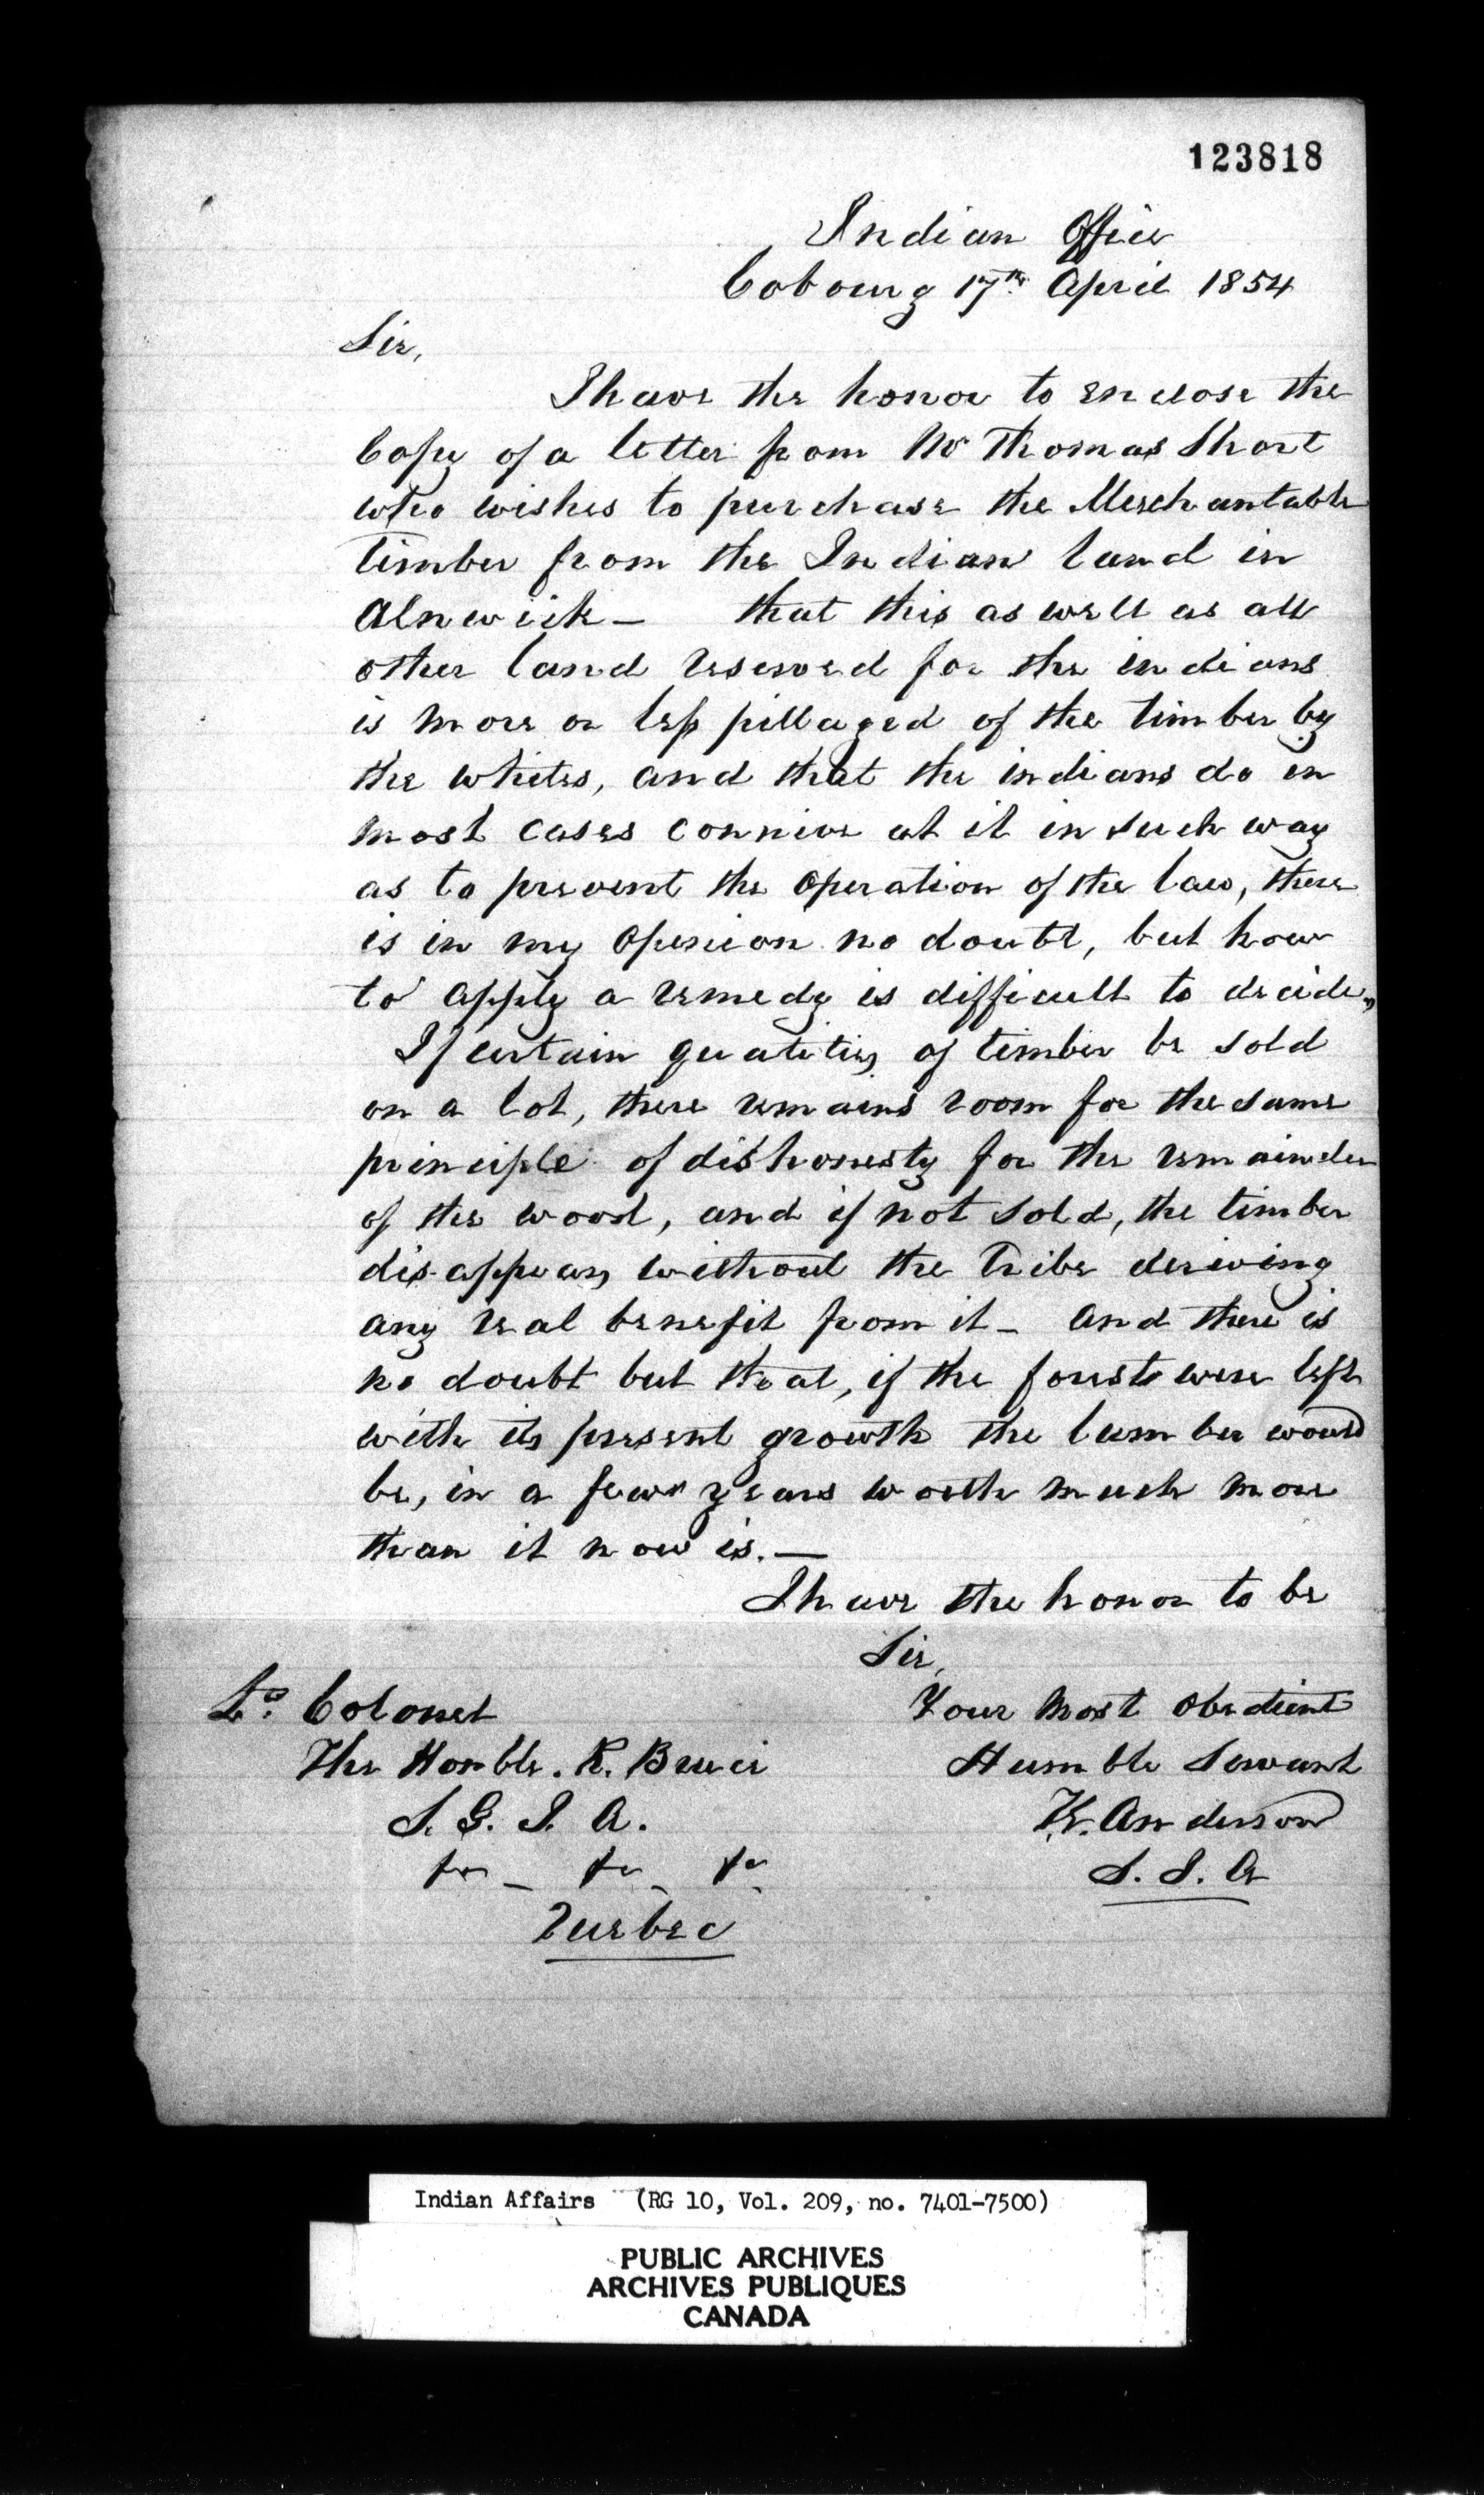 123818
Indian Office
Cobourg 17th April 1854
Sir,
I have the honor to enclose the
Copy of a letter from Mr Thomas Short
who wishes to purchase the Merchantable
timber from the Indian land in
Alnwick — that this as well as all
other land reserved for the indians
is more or less pillaged of the timber by
the whites, and that the indians do in
most cases connive at it in such way
as to prevent the operation of the law, there
is in my opinion no doubt, but how
to apply a remedy is difficult to decide,
If certain quatities of timber be sold
on a lot, there remains room for the same
principle of dishonesty for the remainder
of the wood, and if not sold, the timber
disappears without the Tribe deriving
any real benefit from it — and there is
no doubt but that, if the forest were left
with its present growth the lumber would
be, in a few years worth much more
than it now is. —
I have the honor to be
Sir,
Your most obedient
Humble Servant
Anderson
S. I. A
Lt. Colonel
The Honble. R. Bruce
S. G. I. A.
Quebec
Indian Affairs (RG 10, Vol. 209, no. 7401-7500)
PUBLIC ARCHIVES
ARCHIVES PUBLIQUES
CANADA